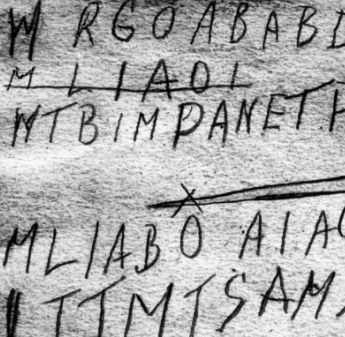 W RGOABABD
M L I A O I
WTBIMPANETP
MLIABO AIAQ
ITTMTSAM